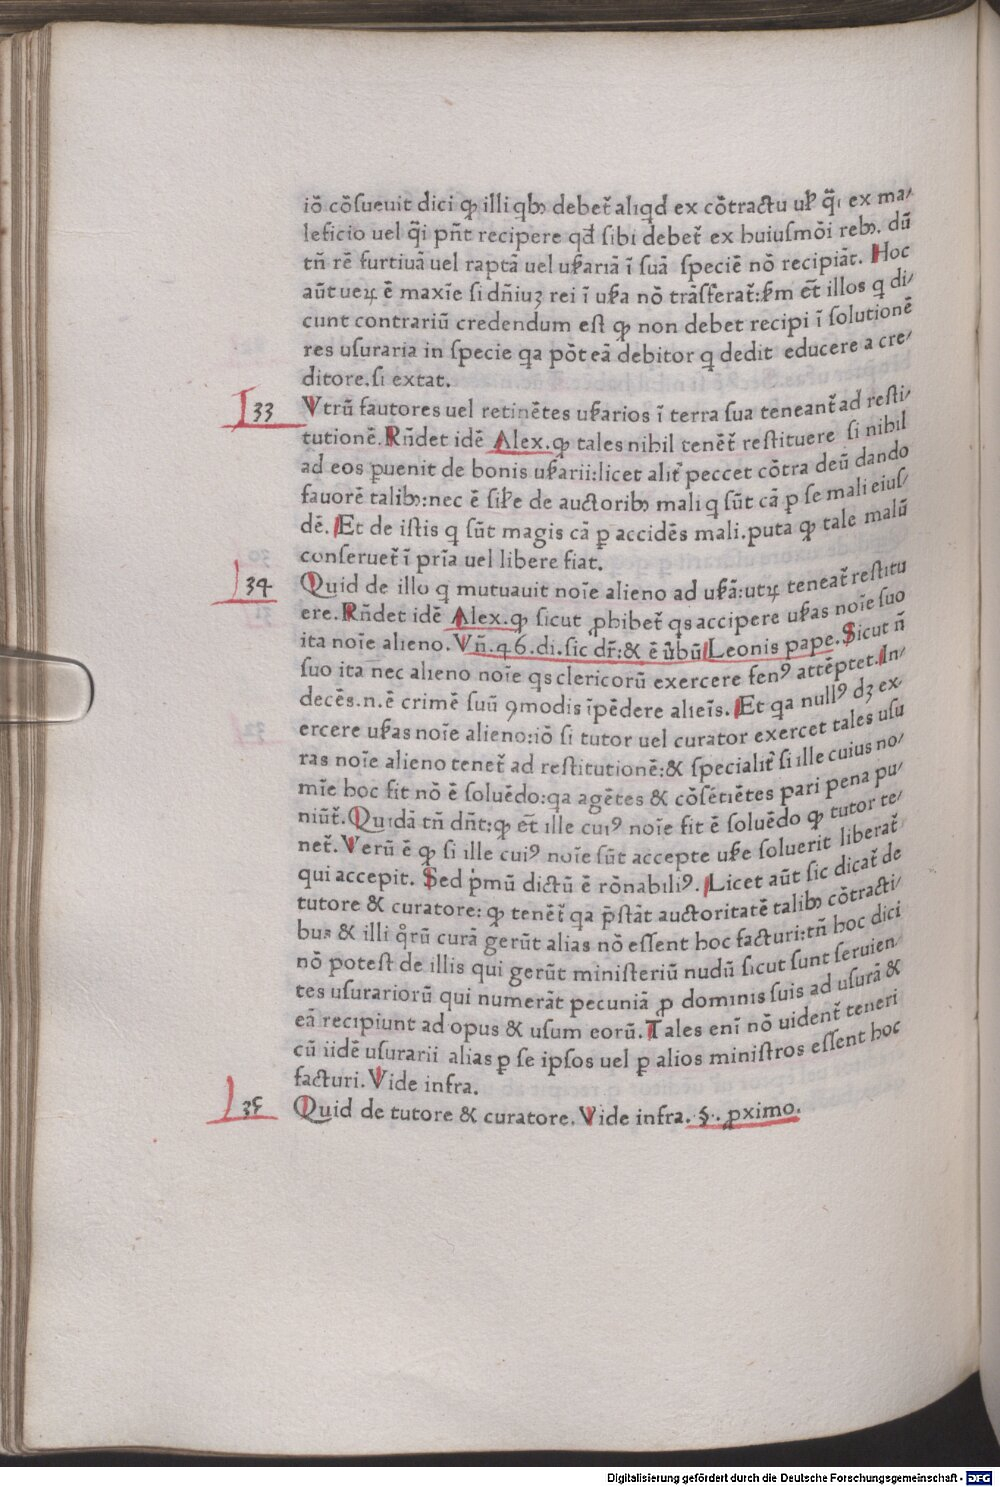 iõ cõsueuit dici ꝙ illi qbꝫ debet̃ aliqd ex cõtractu uꝉ q̃i ex ma/
leficio uel q̃i pñt recipere qd̃ sibi debet̃ ex huiusmõi rebꝫ. dũ
tñ rẽ furtiuã uel raptã uel uꝉariã ĩ suã speciẽ nõ recipiãt. Hoc
aũt ueꝝ ẽ maxĩe si dñiuꝫ rei ĩ uꝉa nõ trãsferat̃: ꝉm et̃ illos q di/
cunt contrariũ credendum est ꝙ non debet recipi ĩ solutionẽ
res usuraria in specie qa põt eã debitor q dedit educere a cre/
ditore. si extat.
33 Vtrũ fautores uel retinẽtes uꝉarios ĩ terra sua teneant̃ ad resti/
tutionẽ. Rñdet idẽ Alex. ꝙ tales nihil tenẽt̃ restituere si nihil
ad eos ꝑuenit de bonis uꝉarii: licet alit̃ peccet cõtra deũ dando
fauorẽ talibꝫ: nec ẽ siꝉe de auctoribꝫ mali q sũt cã ꝑ se mali eius/
dẽ. Et de istis q sũt magis cã ꝑ accidẽs mali. puta ꝙ tale malũ
conseruet̃ ĩ prĩa uel libere fiat.
34 Quid de illo q mutuauit noĩe alieno ad uꝉã: utꝝ teneat̃ restitu
ere. Rñdet idẽ Alex. ꝙ sicut ꝓhibet̃ q̃s accipere uꝉas noĩe suo
ita noĩe alieno. Vñ. 46. di. sic dr̃: & ẽ ũbũ Leonis pape. Sicut ñ
suo ita nec alieno noĩe qs clericorũ exercere fenꝰ attẽptet. In/
decẽs. n. ẽ crimẽ suũ ꝯmodis ĩpẽdere alieĩs. Et qa nullꝰ dꝫ ex/
ercere uꝉas noĩe alieno: iõ si tutor uel curator exercet tales usu
ras noĩe alieno tenet̃ ad restitutionẽ: & specialit̃ si ille cuius no/
mĩe hoc fit nõ ẽ soluẽdo: qa agẽtes & cõsẽtiẽtes pari pena pu/
niũt̃. Quidã tñ dñt: ꝙ et̃ ille cuiꝰ noĩe fit ẽ soluẽdo ꝙ tutor te/
net̃. Verũ ẽ ꝙ si ille cuiꝰ noĩe sũt accepte uꝉe soluerit liberat̃
qui accepit. Sed p̃mũ dictũ ẽ rõnabiliꝰ. Licet aũt sic dicat̃ de
tutore & curatore: ꝙ tenẽt̃ qa p̃stãt auctoritatẽ talibꝫ cõtracti/
bus & illi q̃rũ curã gerũt alias nõ essent hoc facturi: tñ hoc dici
nõ potest de illis qui gerũt ministeriũ nudũ sicut sunt seruien/
tes usurariorũ qui numerãt pecuniã ꝓ dominis suis ad usurã &
eã recipiunt ad opus & usum eorũ. Tales enĩ nõ uident̃ teneri
cũ iidẽ usurarii alias ꝑ se ipsos uel ꝑ alios ministros essent hoc
facturi. Vide infra.
35 Quid de tutore & curatore. Vide infra. §. ꝓximo.
Digitalisierung gefördert durch die Deutsche Forschungsgemeinschaft - DFG